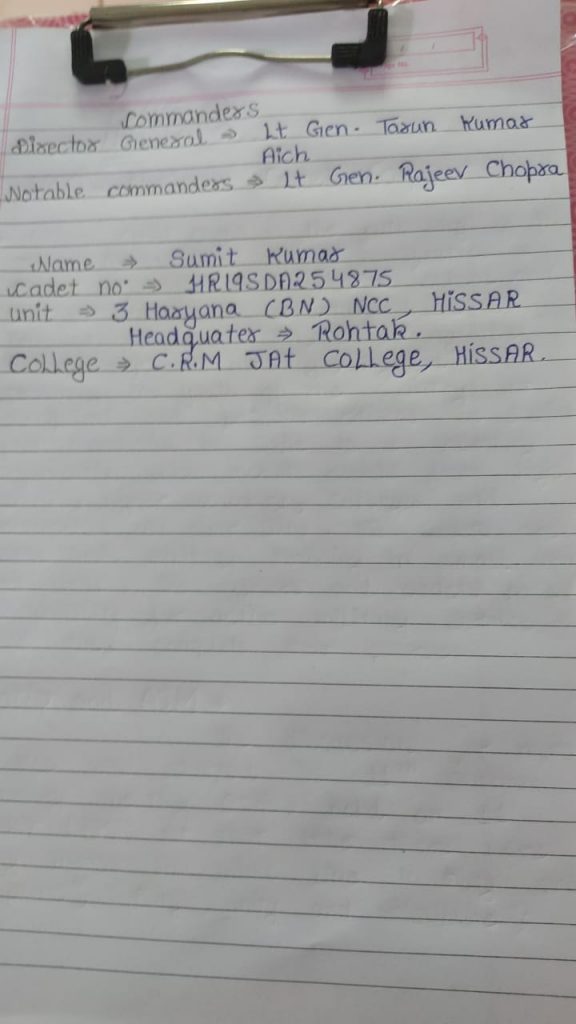 Commanders
Director General ⇒ Lt Gen. Tarun Kumar
Aich
Notable commanders ⇒ Lt Gen. Rajeev Chopra
Name ⇒ Sumit Kumar
Cadet no. ⇒ HR19SDA254875
unit ⇒ 3 Haryana (BN) NCC, HiSSAR
Headquater ⇒ Rohtak.
College ⇒ C.R.M JAt College, HiSSAR.